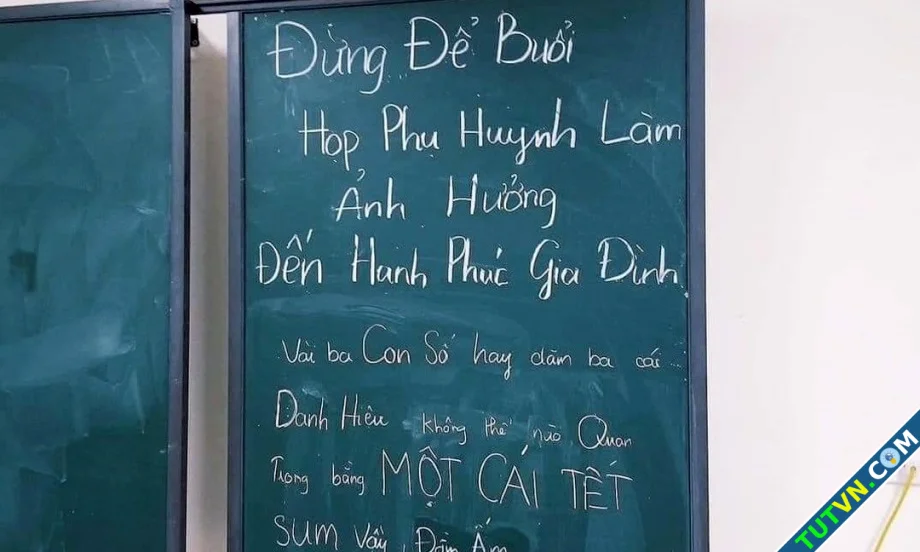 Đừng Để Buổi
Họp Phụ Huynh Làm
Ảnh Hưởng
Đến Hạnh Phúc Gia Đình
Vài ba Con Số hay dăm ba cái ...
Danh Hiệu không thể nào Quan
Trọng bằng MỘT CÁI TẾT
SUM Vầy, Đầm Ấm
TUTVN.COM